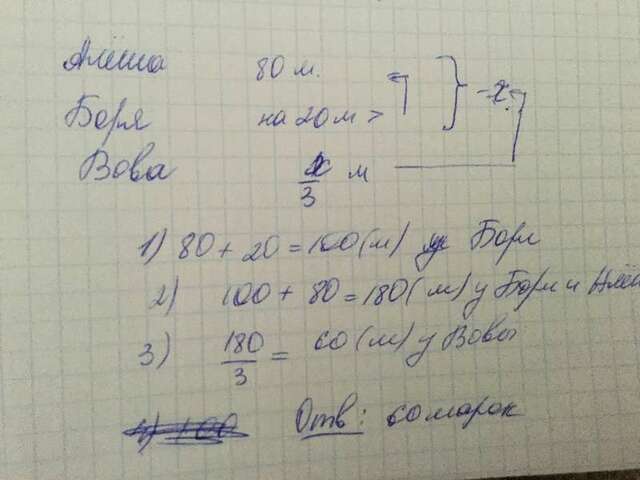 Алёша 80 м.
Боря на 20 м > } - x
Вова x/3 м
1) 80 + 20 = 100 (м) у Бори
2) 100 + 80 = 180 (м) у Бори и Алё
3) 180/3 = 60 (м) у Вовы
4) 100
Отв: 60 марок